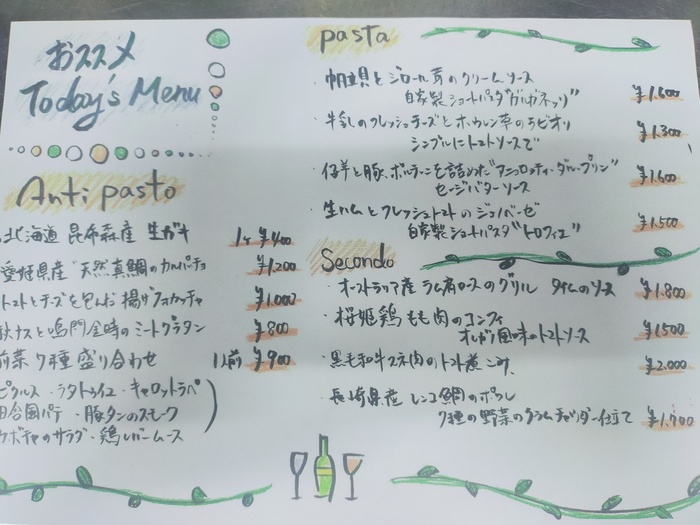 おススメ
Today's Menu
Anti pasto
北海道 昆布森産 生ガキ 1ヶ ¥400
愛媛県産 天然真鯛のカルパッチョ ¥1,200
トマトとチーズを包んだ 揚げフォカッチャ ¥1,000
秋ナスと鳴門金時のミートグラタン ¥800
前菜7種盛り合わせ 1人前 ¥900
ピクルス・ラタトゥイユ・キャロットラペ
田舎風パテ・豚タンのスモーク
カボチャのサラダ・鶏レバームース
pasta
・帆立貝とジロール茸のクリームソース
自家製ショートパスタ"ガルガネッリ" ¥1,600
・牛乳のフレッシュチーズとホウレン草のラビオリ
シンプルにトマトソースで ¥1,300
・仔羊と豚、ポルチーニを詰めた"アニョロッティ・ダル・プリン"
セージバターソース ¥1,600
・生ハムとフレッシュトマトのジェノベーゼ
自家製ショートパスタ"トロフィエ" ¥1,500
Secondo
・オーストラリア産 ラム肩ロースのグリル タイムのソース ¥1,800
・桜姫鶏もも肉のコンフィ
オレガノ風味のトマトソース ¥1500
・黒毛和牛スネ肉のトマト煮こみ ¥2,000
・長崎県産 レンコ鯛のポワレ
7種の野菜のクラムチャウダー仕立て ¥1,700